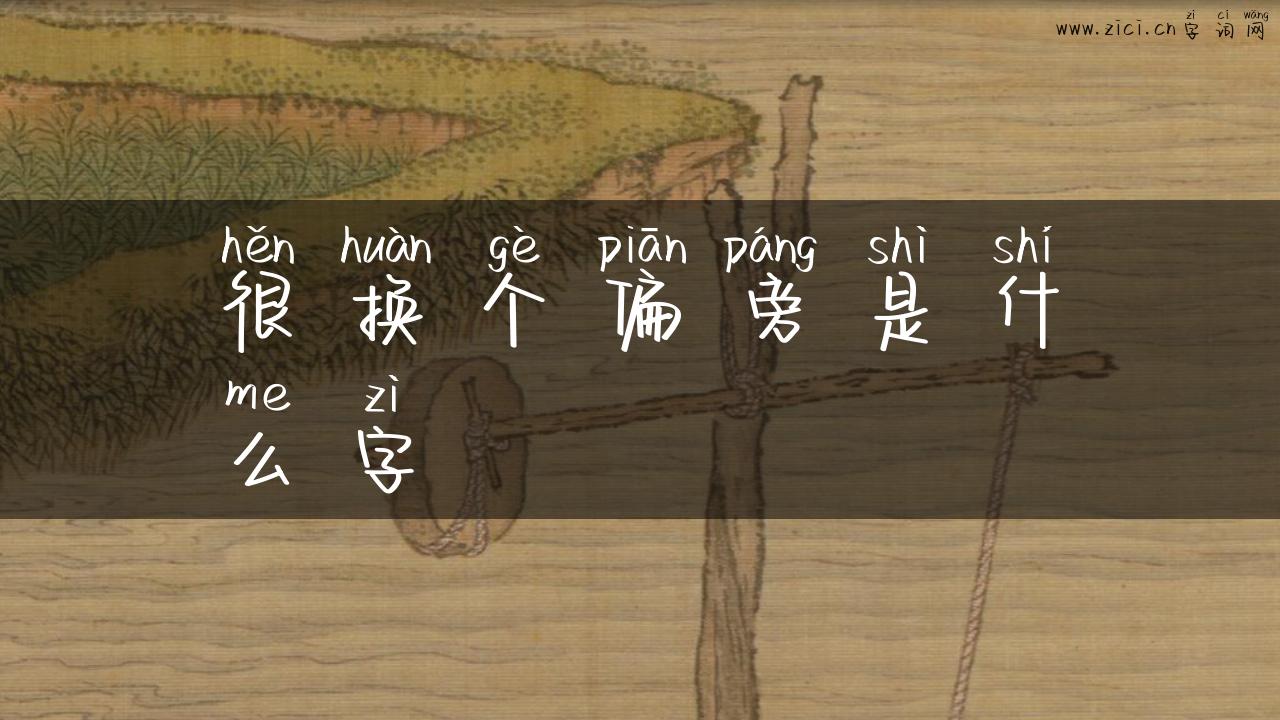 zì cí wǎng
www.zici.cn 字 词 网
hěn huàn gè piān páng shì shí
很 换 个 偏 旁 是 什
me zì
么 字